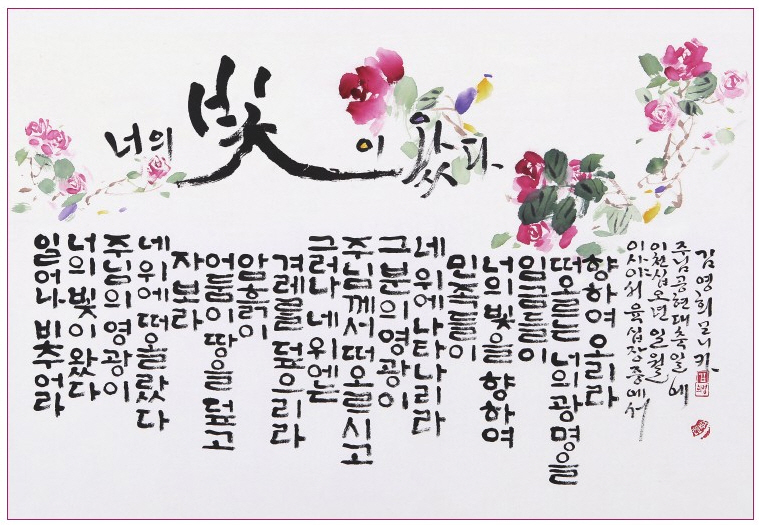 너의 빛이 왔다
일어나 비추어라
너의 빛이 왔다
주님의 영광이
네 위에 떠올랐다
자 보라
어둠이 땅을 덮고
암흑이
겨레를 덮으리라
그러나 네 위에는
주님께서 떠오르시고
그분의 영광이
네 위에 나타나리라
민족들이
너의 빛을 향하여
임금들이
떠오르는 너의 광명을
향하여 오리라
이사야서 육십장 중에서
이천십오년 일월
주님공현대축일에
김영희 모니카